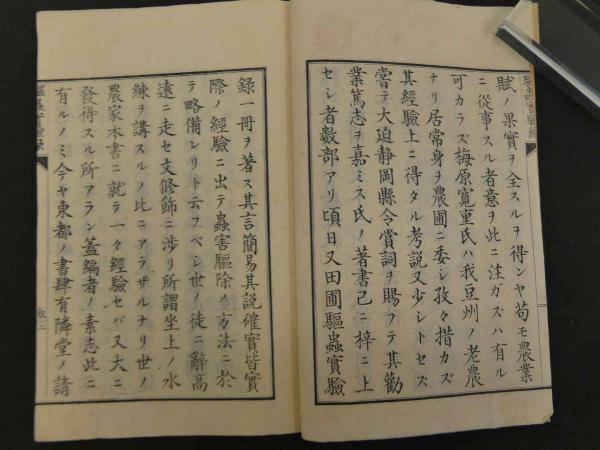 賦ノ果實ヲ全スルヲ得ンヤ苟モ農業
ニ從事スル者意ヲ此ニ注ガズハ有ル
可カラズ梅原寬重氏ハ我豆州ノ老農
ナリ居常身ヲ農圃ニ委シ孜々措カズ
其經驗上ニ得タル考說又少シトセズ
嘗テ大迫静岡縣令賞詞ヲ賜フテ其勸
業篤志ヲ嘉ミス氏ノ著書已ニ梓ニ上
セシ者数部アリ頃日又田圃驅蟲實驗
錄一冊ヲ著ス其言簡易其說確實皆實
際ノ經驗ニ出テ蟲害驅除ノ方法ニ於
テ略備レリト云フベシ世ノ徒ニ辭高
遠ニ走セ文修飾ニ涉リ所謂坐上ノ水
練ヲ講スルノ比ニアラザルナリ世ノ
農家本書ニ就テ一々經驗セバ又大ニ
發得スル所アラン蓋編者ノ素志此ニ
有ルノミ今ヤ東都ノ書肆有隣堂ノ請